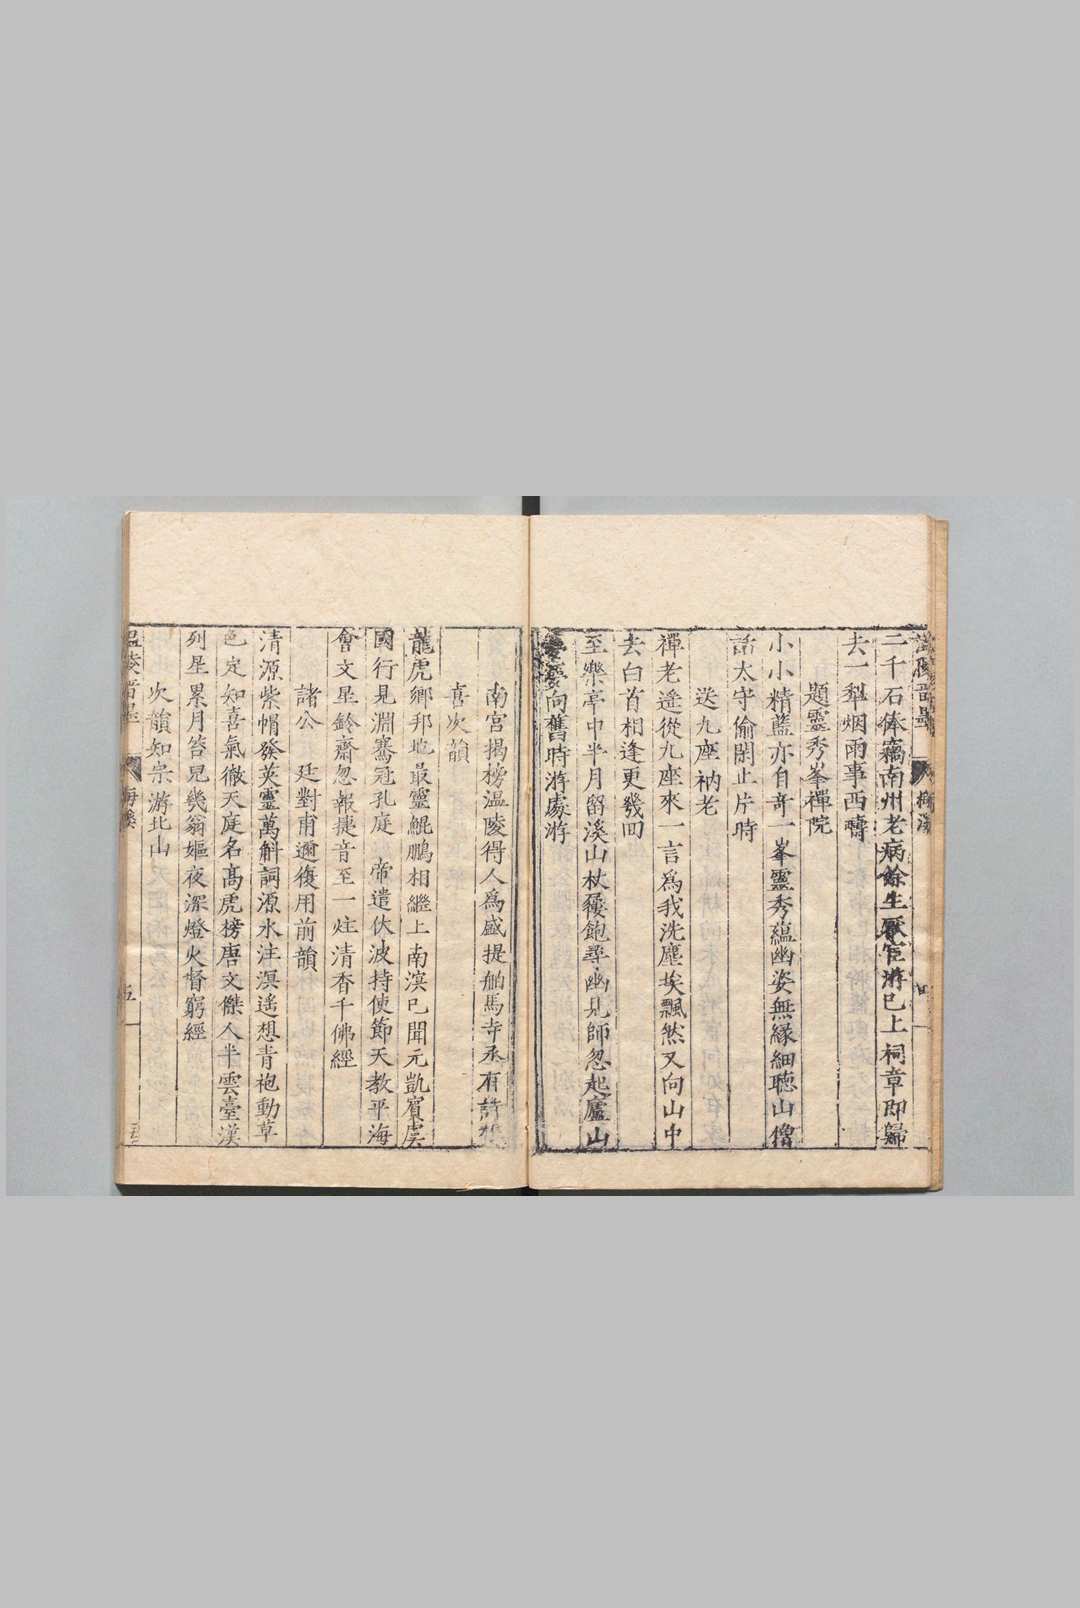 二千石俸竊南州老病餘生厭宦游已上祠章即歸
去一犂烟雨事西疇
題靈秀峯禪院
小小精藍亦自奇一峯靈秀蘊幽姿無緣細聽山僧
話太守偷閑止片時
送九座衲老
禪老遙從九座來一言爲我洗塵埃飄然又向山中
去白首相逢更幾回
至樂亭中半月留溪山杖屨飽尋幽見師忽起廬山
夢向舊時游處游
南宮揭榜温陵得人爲盛提舶馬寺丞有詩
喜次韻
龍虎鄉邦地最靈鯤鵬相繼上南溟已聞元凱賓虞
國行見淵騫冠孔庭 帝遣伏波持使節天教平海
會文星鈴齋忽報捷音至一炷清香千佛經
諸公 廷對甫邇復用前韻
清源紫帽發英靈萬斛詞源水注溟遙想青袍動草
色定知喜氣徹天庭名髙虎榜唐文傑人半雲臺漢
列星累月笞兒幾翁嫗夜深燈火督窮經
次韻知宗游北山